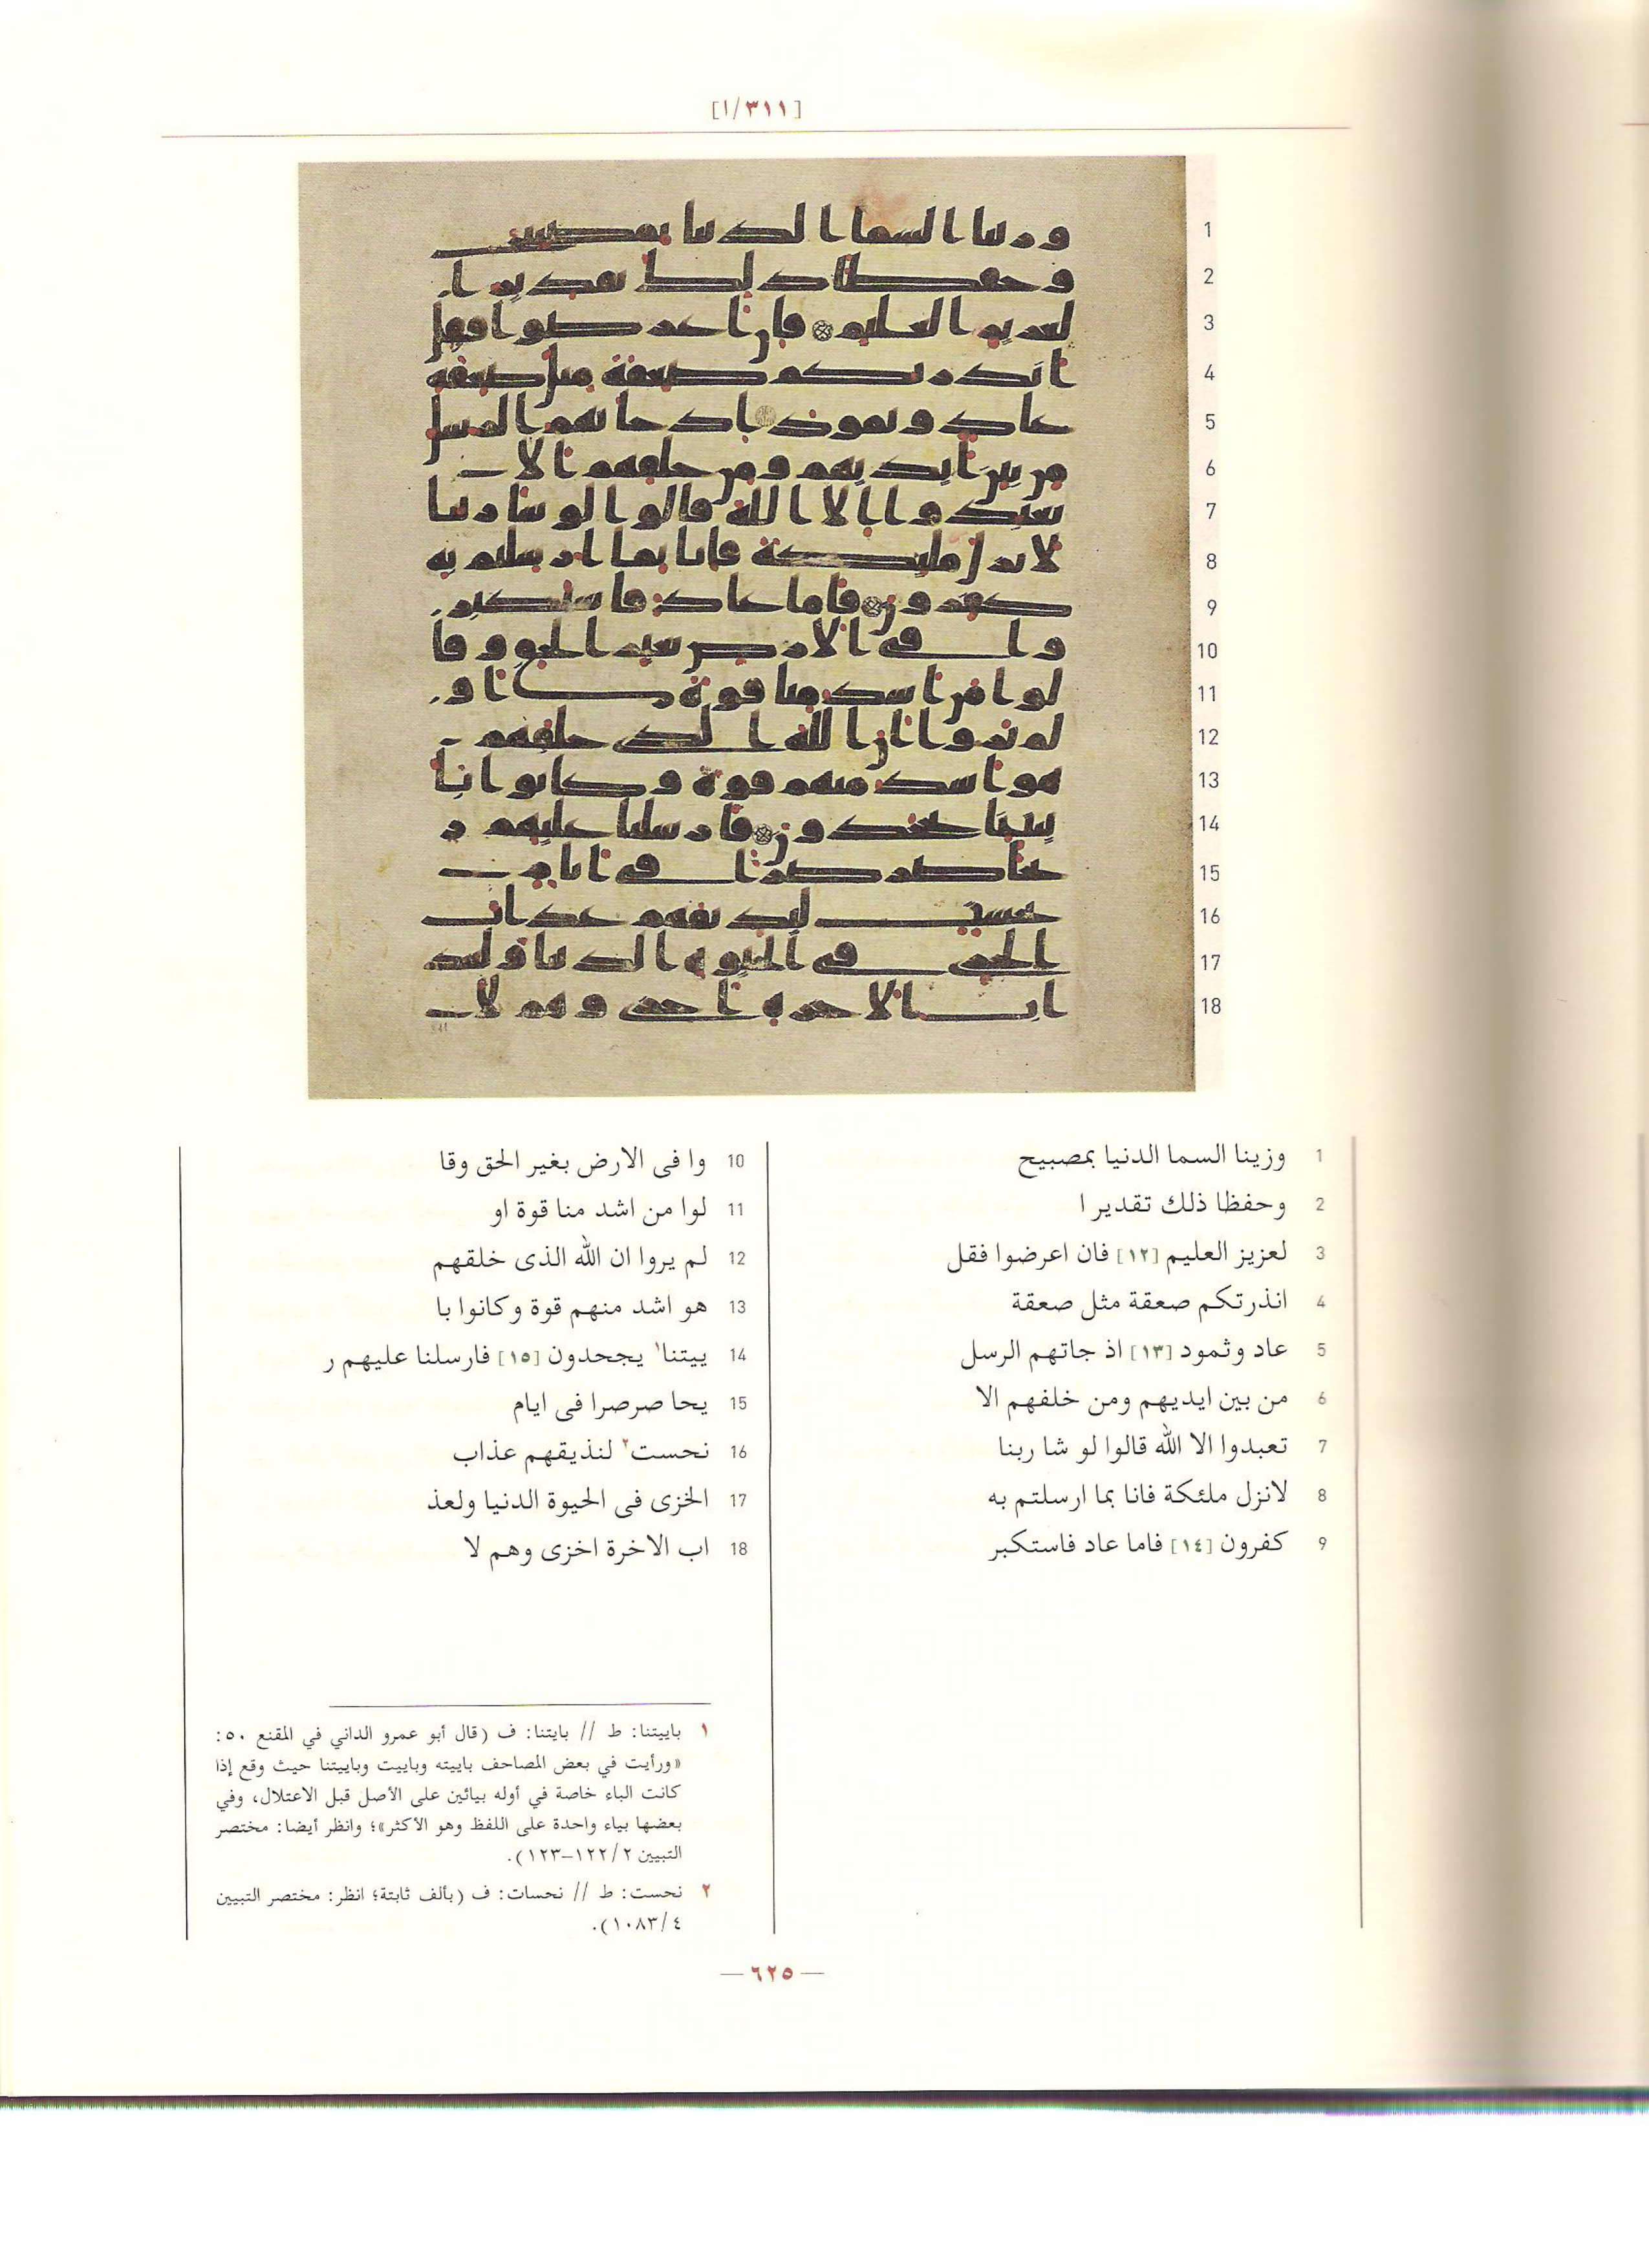 [٣١١/ا]
1 وزينا السما الدنيا بمصبيح
2 وحفظا ذلك تقدير ا
3 لعزيز العليم [١٢] فان اعرضوا فقل
4 انذرتكم صعقة مثل صعقة
5 عاد وثمود [١٣] اذ جاتهم الرسل
6 من بين ايديهم ومن خلفهم الا
7 تعبدوا الا الله قالوا لو شا ربنا
8 لانزل ملئكة فانا بما ارسلتم به
9 كفرون [١٤] فاما عاد فاستكبر
10 وا فى الارض بغير الحق وقا
11 لوا من اشد منا قوة او
12 لم يروا ان الله الذى خلقهم
13 هو اشد منهم قوة وكانوا با
14 ييتنا١ يجحدون [١٥] فارسلنا عليهم ر
15 يحا صرصرا فى ايام
16 نحست٢ لنذيقهم عذاب
17 الخزى فى الحيوة الدنيا ولعذ
18 اب الاخرة اخزى وهم لا
١ باييتنا: ط // بايتنا: ف (قال أبو عمرو الداني في المقنع ٥٠:
«ورأيت في بعض المصاحف باييته وباييت وباييتنا حيث وقع إذا
كانت الباء خاصة في أوله بيائين على الأصل قبل الاعتلال، وفي
بعضها بياء واحدة على اللفظ وهو الأكثر»؛ وانظر أيضا: مختصر
التبيين ١٢٢/٢–١٢٣).
٢ نحست: ط // نحسات: ف (بألف ثابتة؛ انظر: مختصر التبيين
١٠٨٣/٤).
—٦٢٥—